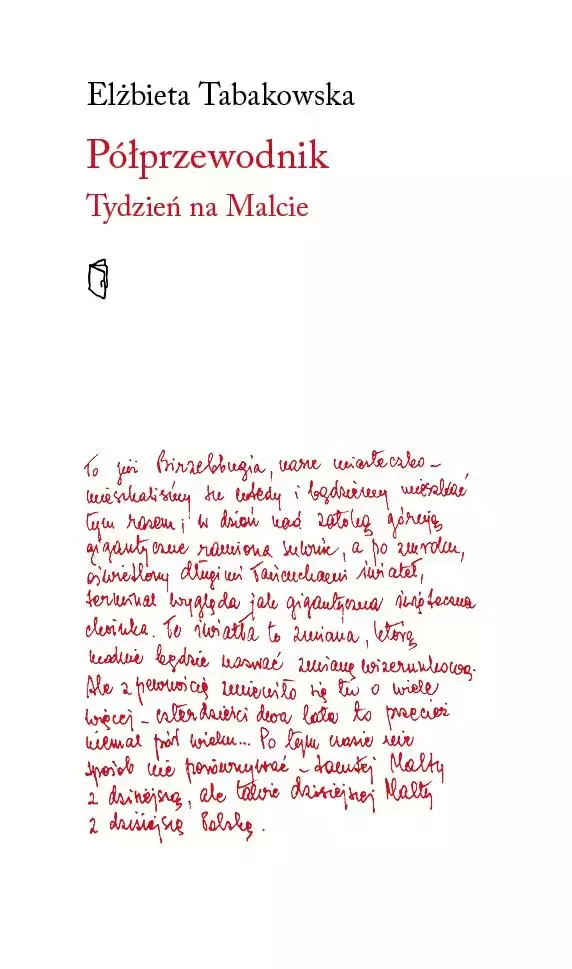 Elżbieta Tabakowska
Półprzewodnik
Tydzień na Malcie
To już Birżebbugia, nasze miasteczko –
mieszkaliśmy tu wtedy i będziemy mieszkać
tym razem; w dzień nad zatoką górują
gigantyczne ramiona suwnic, a po zmroku,
oświetlony długimi łańcuchami świateł,
terminal wygląda jak gigantyczna świąteczna
choinka. Te światła to zmiana, którą
modnie będzie nazwać zmianą wizerunkową.
Ale z pewnością zmieniło się tu o wiele
więcej – czterdzieści dwa lata to przecież
niemal pół wieku... Po tym czasie nie
sposób nie porównywać – tamtej Malty
z dzisiejszą, ale także dzisiejszej Malty
z dzisiejszą Polską.